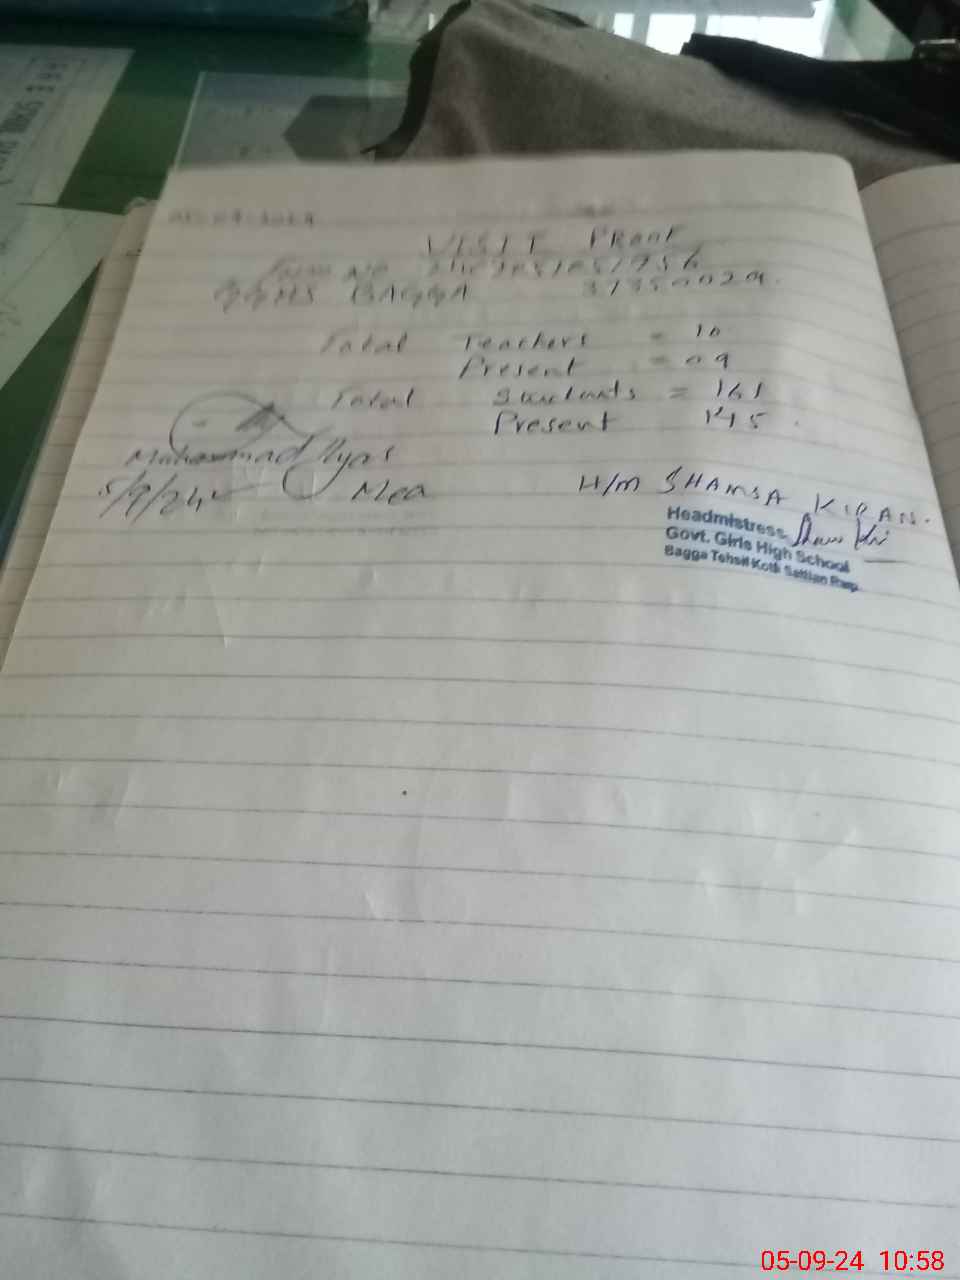 VISIT
GGHS BAGGA 37350029.
Total Teachers = 10
Present = 09
Total Students = 161
Present 145.
Muhammad Ilyas
5/9/24 Mea
H/M SHAMSA KIRAN.
Headmistress
Govt. Girls High School
Bagga Tehsil Kotli Sattian Rwp
05-09-24 10:58